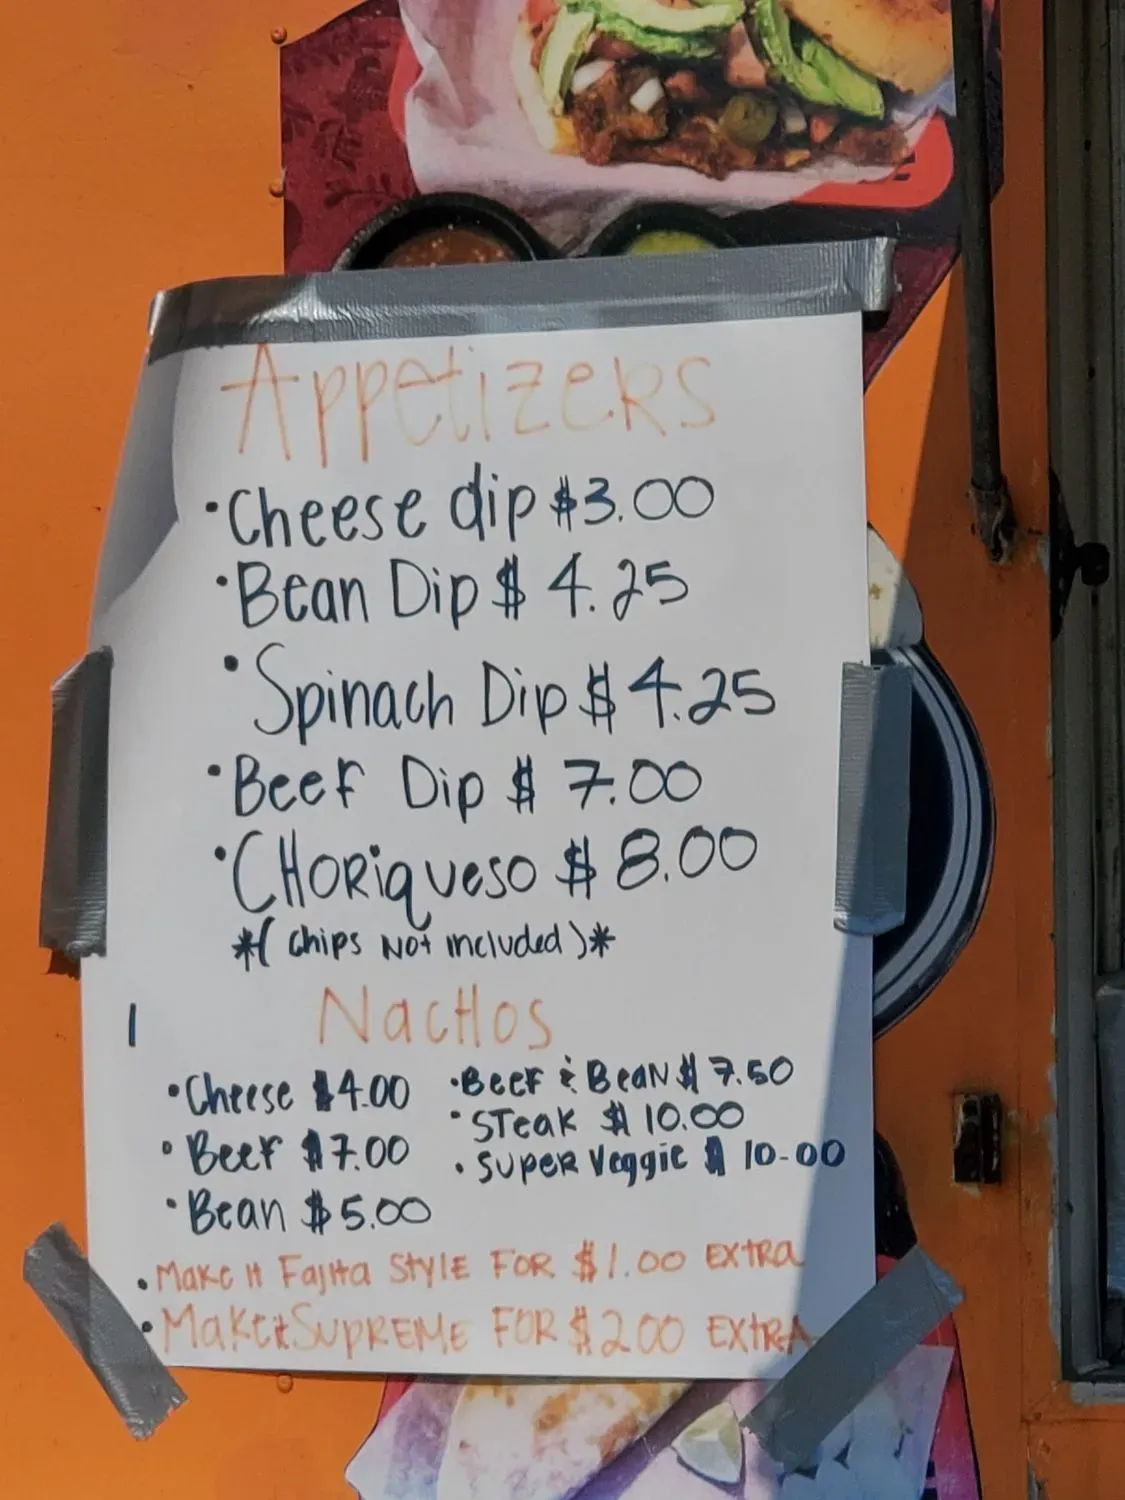 Appetizers
•Cheese dip $3.00
•Bean Dip $ 4.25
•Spinach Dip $ 4.25
•Beef Dip $ 7.00
•CHORiqueso $ 8.00
*( Chips Not included )*
NacHos
•Cheese $4.00
•Beef $7.00
•Bean $5.00
•Beef & BeaN $ 7.50
•STeak $ 10.00
•SUPER Veggie $ 10-00
•Make it Fajita STYLE FOR $1.00 EXTRa
•Make it SUPREME FOR $2.00 EXTRA